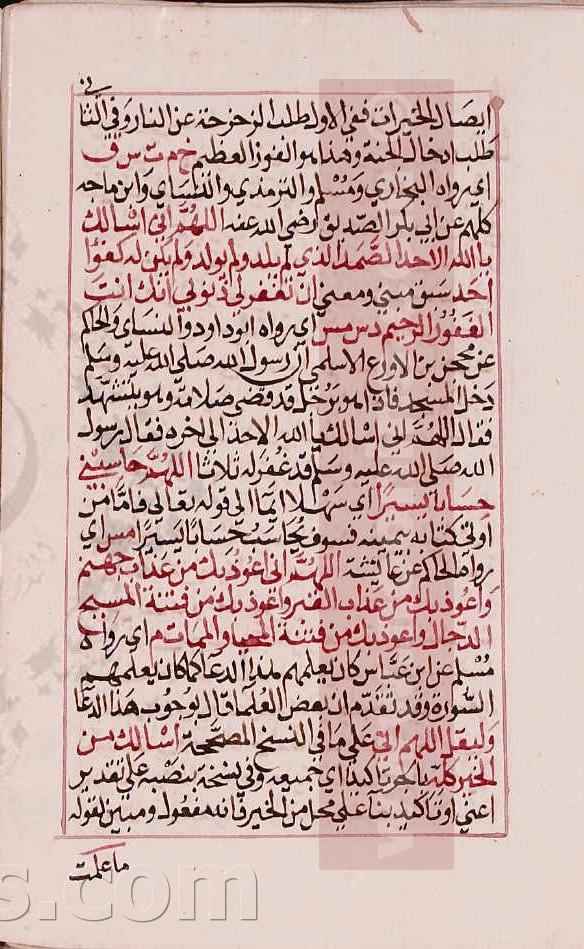 ايصال الخيرات ففي الاول طلب الزحزحة عن النار وفي الثا
طلب ادخال الجنة وهذا هو الفوز العظيم خ م ت س ق
اي رواه البخاري ومسلم والترمذي والنساي وابن ماجه
كلهم عن ابي بكر الصديق رضي الله عنه اللهم اني اسالك
يا الله الاحد الصمد الذي لم يلد ولم يولد ولم يكن له كفوا
احد سبق مبني ومعني ان تغفر لي ذنوبي انك انت
الغفور الرحيم د س مس اي رواه ابو داود والنساي والحاكم
عن محجن بن الاورع الاسلمي ان رسول الله صلى الله عليه وسلم
دخل المسجد فاذا هو برجل قد قضى صلاته وهو يتشهد
فقال اللهم اني اسالك يا الله الاحد الى اخره فقال رسول
الله صلى الله عليه وسلم قد غفر له ثلاثا اللهم حاسبني
حسابا يسيرا اي سهلا ايما الى قوله تعالى فاما من
اوتي كتابه بيمينه فسوف يحاسب حسابا يسيرا مس اي
رواه الحاكم عن عايشة اللهم اني اعوذ بك من عذاب جهنم
واعوذ بك من عذاب القبر واعوذ بك من فتنة المسيح
الدجال واعوذ بك من فتنة المحيا والممات م اي رواه
مسلم عن ابن عباس كان يعلمهم هذا الدعا كما كان يعلمهم
السورة وقد تقدم ان بعض العلما قال بوجوب هذا الدعا
وليقل اللهم اني على ما في النسخ المصححة اسالك من
الخير كله بالجر تاكيدا اي جميعه وفي نسخة بنصبه على تقدير
اعني او تاكيد بنا على محل من الخير فانه مفعول ومبين لقوله
ما علمت
s.com